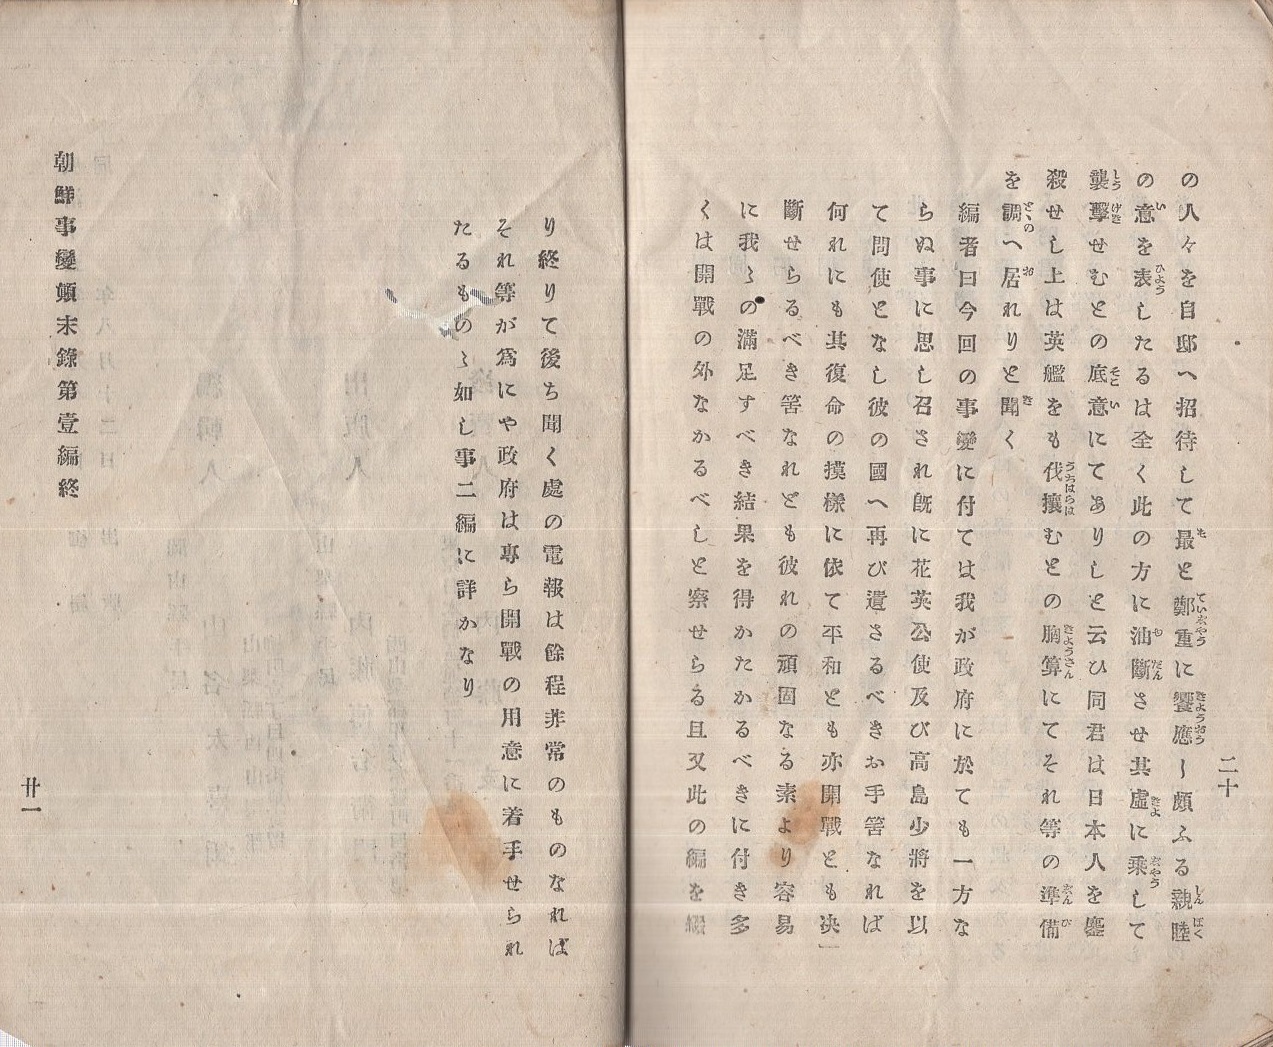 の人々を自邸へ招待して最と鄭重に饗應し頗ふる親睦
の意を表したるは全く此の方に油斷させ其虛に乘して
襲擊せむとの底意にてありしと云ひ同君は日本人を鏖
殺せし上は英艦をも伐攘むとの胸算にてそれ等の準備
を調へ居れりと聞く
編者曰今回の事變に付ては我が政府に於ても一方な
らぬ事に思し召され既に花英公使及び高島少將を以
て問使となし彼の國へ再び遣さるべきお手筈なれば
何れにも其復命の摸樣に依て平和とも亦開戰とも决
斷せらるべき筈なれども彼れの頑固なる素より容易
に我々の滿足すべき結果を得かたかるべきに付き多
くは開戰の外なかるべしと察せらる且又此の編を綴
二十
り終りて後ち聞く處の電報は餘程非常のものなれば
それ等が爲にや政府は專ら開戰の用意に着手せられ
たるものゝ如し事二編に詳かなり
朝鮮事變顚末錄第壹編終
廿一